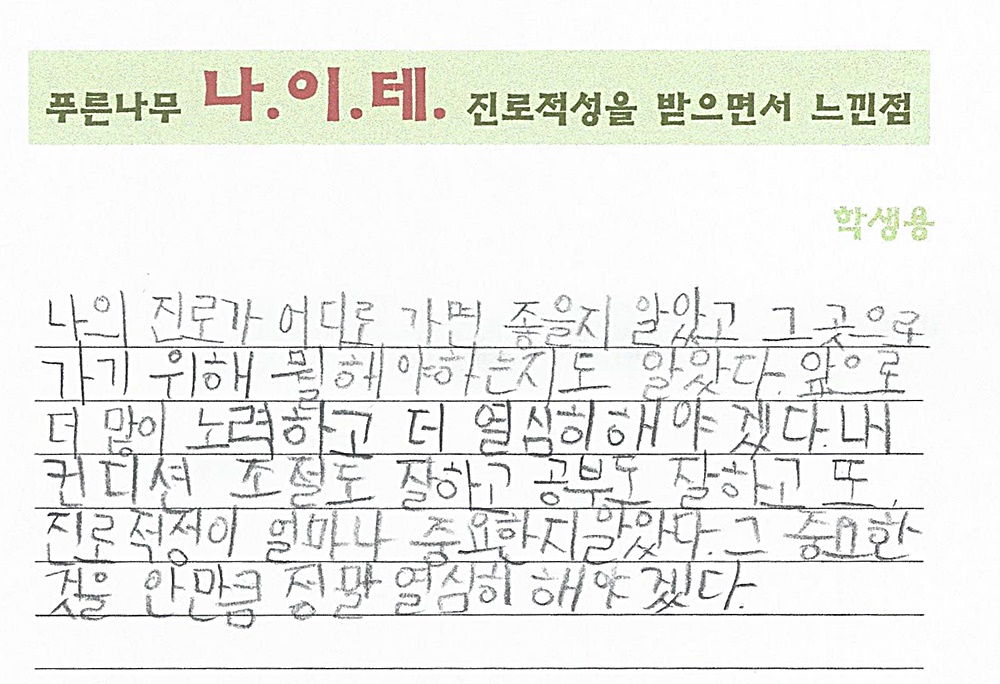 푸른나무 나.이.테. 진로적성을 받으면서 느낀점
학생용
나의 진로가 어디로 가면 좋을지 알았고 그 곳으로
가기 위해 뭘 해야하는지도 알았다. 앞으로
더 많이 노력하고 더 열심히 해야 겠다. 내
컨디션 조절도 잘하고 공부도 잘하고 또,
진로적정이 얼마나 중요한지 알았다. 그 중요한
것을 안만큼 정말 열심히 해야 겠다.